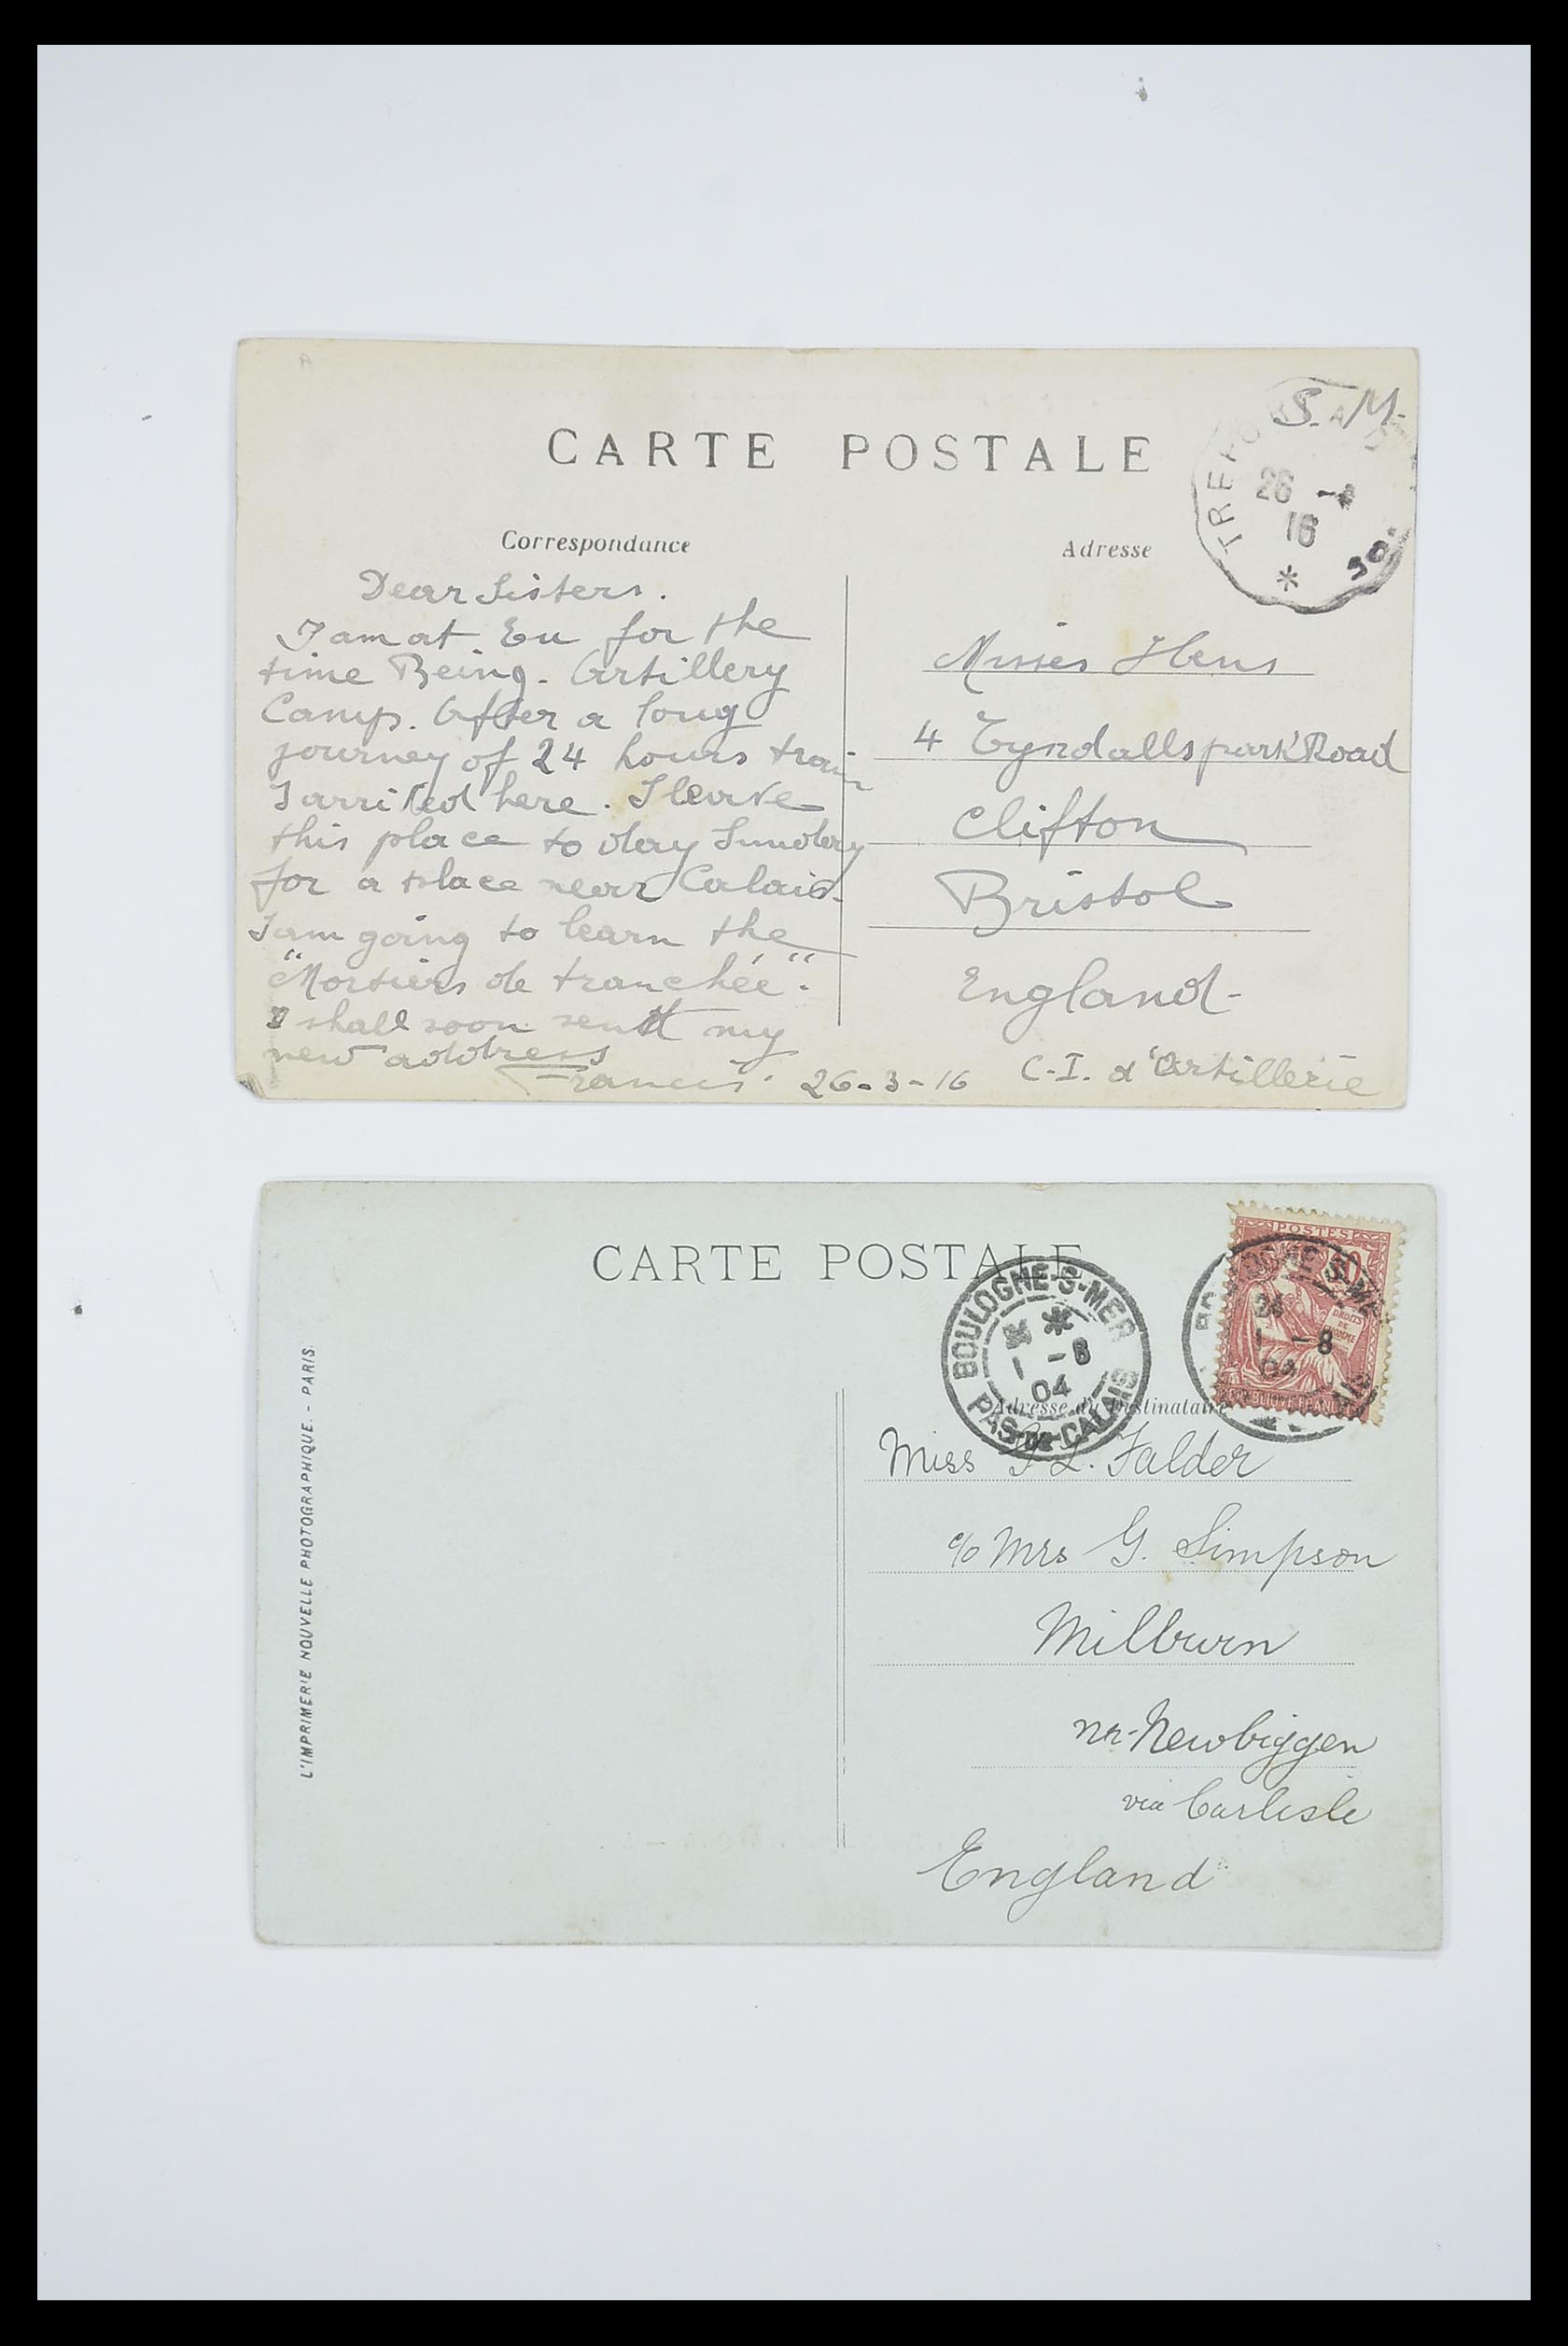 CARTE POSTALE
S. M.
TREPORT A
26 -
16
Correspondance
Adresse
Dear Sisters.
I am at Eu for the
time Being. Artillery
Camp. After a long
journey of 24 hours train
I arrived here. I leave
this place to day Sunday
for a place near Calais.
I am going to learn the
"Mortiers de tranchée".
I shall soon send my
new address
Francis. 26-3-16
Misses
4 Tyndalls park Road
Clifton
Bristol
England-
C-I. d'Artillerie
CARTE POSTALE
BOULOGNE-S-MER
1 -8
04
PAS-DE-CALAIS
POSTES
10
DROITS
DE
L'HOMME
REPUBLIQUE FRANÇAISE
BOULOGNE-S-MER
1 -8
04
Adresse du Destinataire
Miss L. Falder
c/o Mrs G. Simpson
Milburn
nr-Newbiggen
via Carlisle
England
L'IMPRIMERIE NOUVELLE PHOTOGRAPHIQUE. - PARIS.